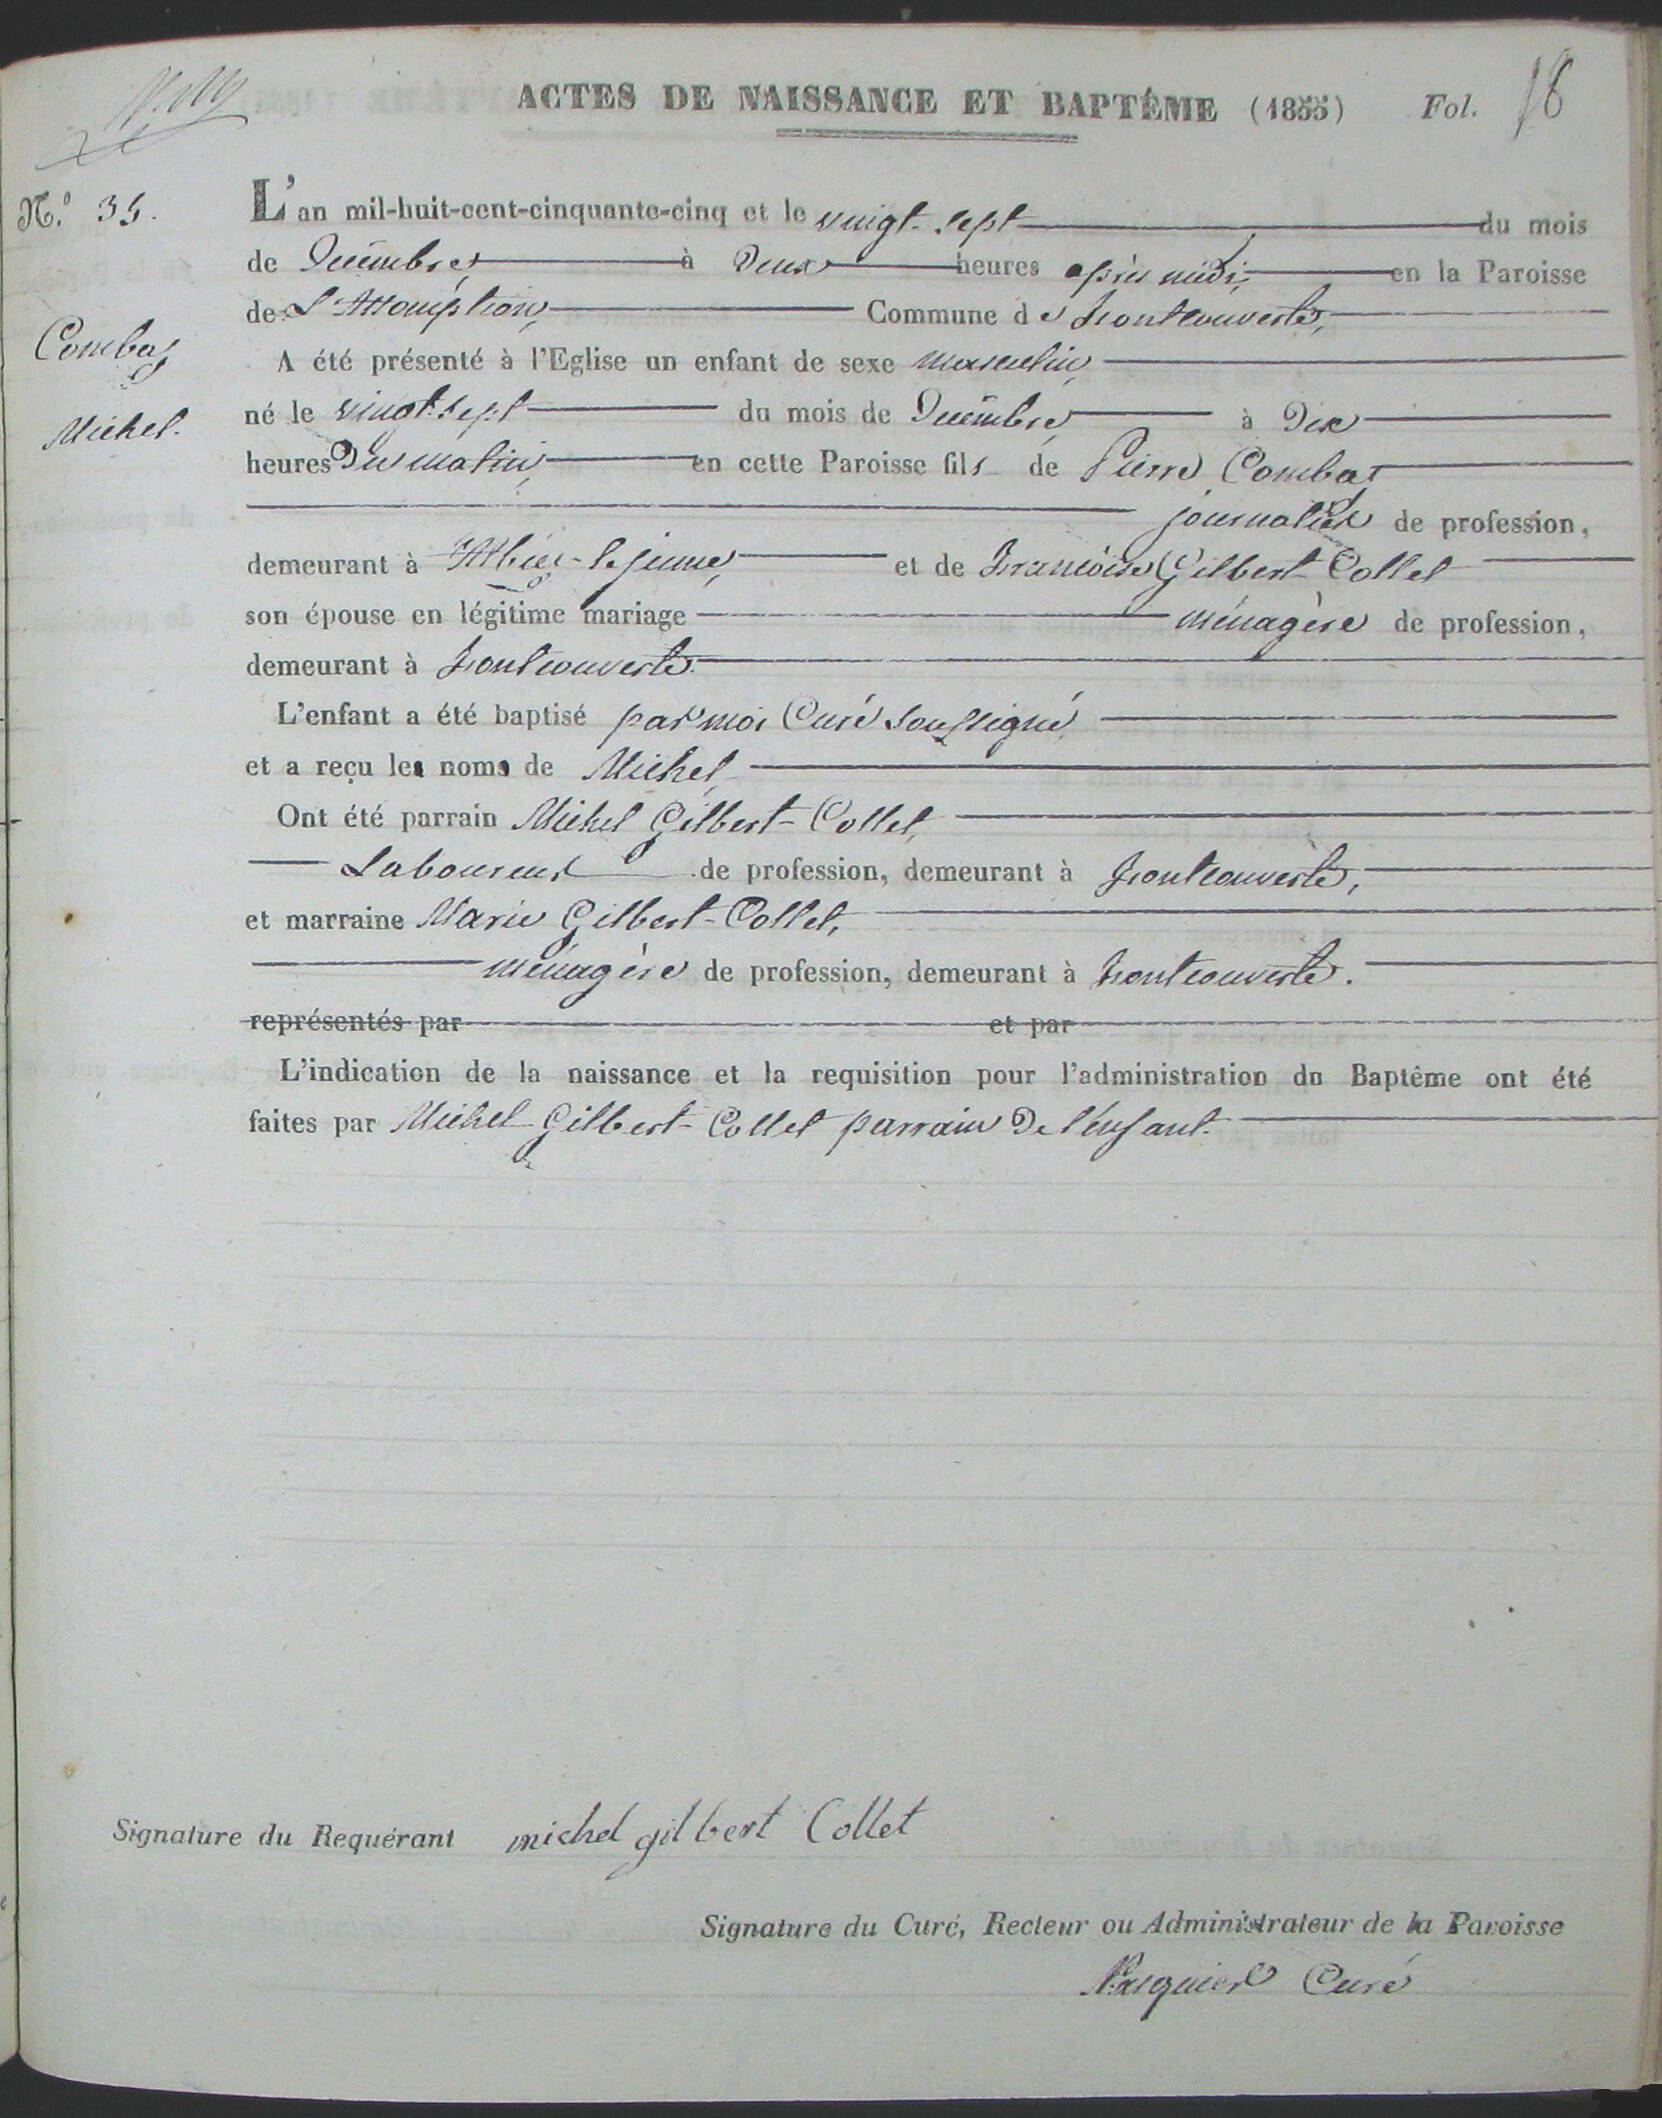 ACTES DE NAISSANCE ET BAPTÊME (1855) Fol. 18
N.º 35.
Combaz
Michel.
L'an mil-huit-cent-cinquante-cinq et le vingt-sept du mois
de Décembre, à Deux heures après midi, en la Paroisse
de L'Assomption, Commune de Montcouverte,
A été présenté à l'Eglise un enfant de sexe masculin,
né le vingt-sept du mois de Décembre, à Dix
heures Du matin, en cette Paroisse fils de Pierre Combaz
journalier de profession,
demeurant à Albiez-le-jeune, et de Françoise Gilbert-Collet
son épouse en légitime mariage ménagère de profession,
demeurant à Montcouverte.
L'enfant a été baptisé par moi Curé soussigné,
et a reçu les noms de Michel,
Ont été parrain Michel Gilbert-Collet,
Laboureur de profession, demeurant à Montcouverte,
et marraine Marie Gilbert-Collet,
ménagère de profession, demeurant à Montcouverte.
représentés par et par
L'indication de la naissance et la requisition pour l'administration du Baptême ont été
faites par Michel Gilbert-Collet parrain De l'enfant.
Signature du Requérant michel gilbert Collet
Signature du Curé, Recteur ou Administrateur de la Paroisse
Pasquier Curé